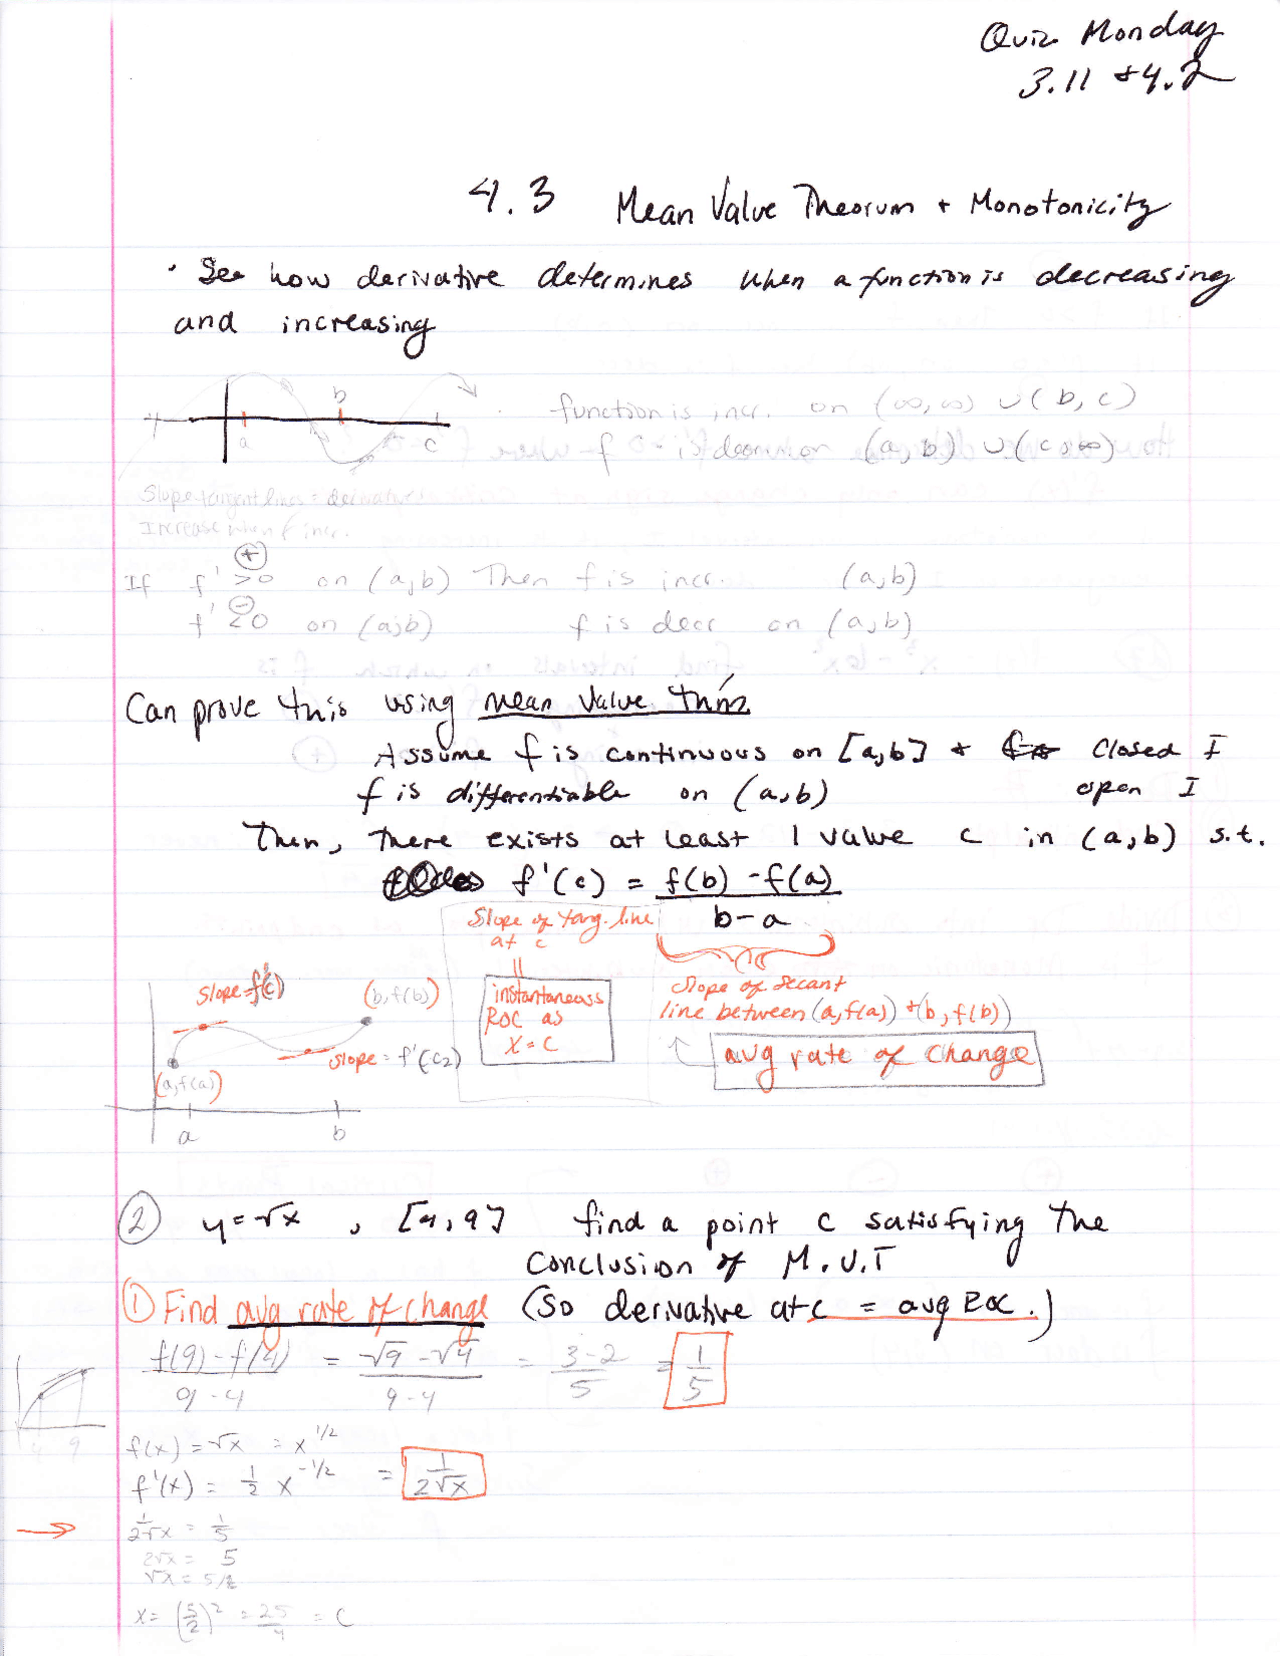 Quiz Monday
3.11 + 4.2
4.3 Mean Value Theorum + Monotonicity
• See how derivative determines when a function is decreasing
and increasing
a b c
function is incr. on (∞,∞) ∪ (b, c)
f is decr on (a, b) ∪ (c, ∞)
Slope tangent lines = derivative
Increase when f incr.
+
If f' >0 on (a,b) Then f is incr. (a,b)
−
f' <0 on (a,b) f is decr on (a,b)
Can prove this using mean value thm
Assume f is continuous on [a,b] + closed I
f is differentiable on (a,b) open I
Then, there exists at least 1 value c in (a,b) s.t.
f'(c) = f(b) - f(a)
b - a
Slope of tang. line
at c
||
instantaneous
ROC as
x = c
slope of secant
line between (a, f(a)) + (b, f(b))
avg rate of change
slope = f'(c)
(b, f(b))
slope = f'(c2)
(a, f(a))
a b
② y = √x , [4, 9] find a point c satisfying the
conclusion of M.V.T
① Find avg rate of change (so derivative at c = avg ROC.)
f(9) - f(4) = √9 - √4 = 3 - 2 = 1
9 - 4 9 - 4 5 5
4 9
f(x) = √x = x^1/2
f'(x) = 1/2 x^-1/2 = 1/2√x
→ 1/2√x = 1/5
2√x = 5
√x = 5/2
x = (5/2)² = 25/4 = c